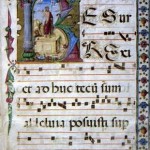 ESur
REXi
et ad huc tecū sum
alleluia posuisti sup